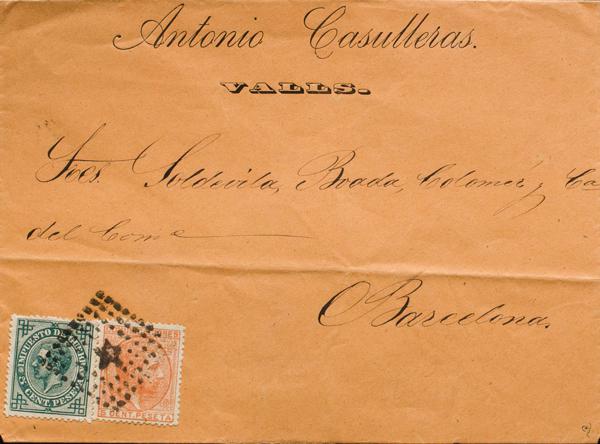 Antonio Casulleras.
VALLS.
Sres. Soldevila, Boada, Colomer y Ca
del Come
Barcelona.
IMPUESTO DE GUERRA
5 CENT. PESETA
5 CENT. PESETA